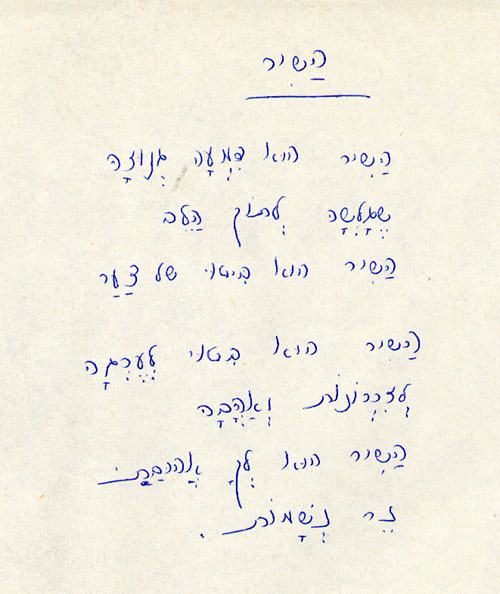 הַשִּׁיר
הַשִּׁיר הוא דִּמְעָה גְּנוּזָה
שֶׁגָּלְשָׁה לְתוֹךְ הַלֵּב
הַשִּׁיר הוא בִּיטוּי של צַעַר
הַשִּׁיר הוא בִּטוּי לְעֶרְגָּה
לְזִכְרוֹנוֹת וְאַהֲבָה
הַשִּׁיר הוא לְךָ אֲהוּבַת
זֵר נְשָׁמוֹת.